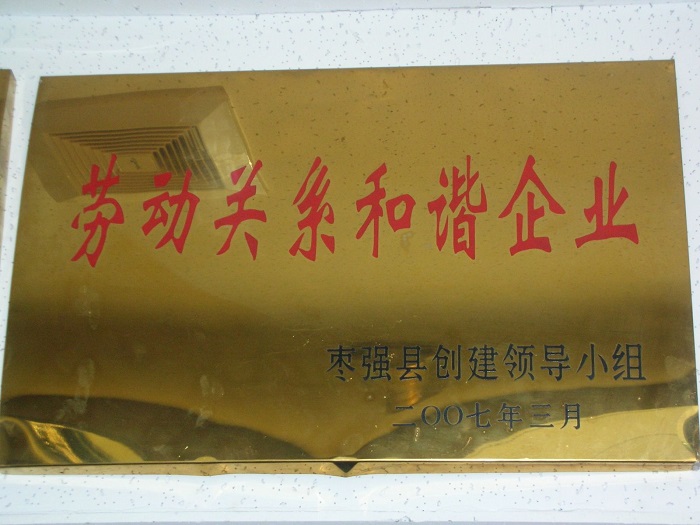 劳动关系和谐企业
枣强县创建领导小组
二〇〇七年三月